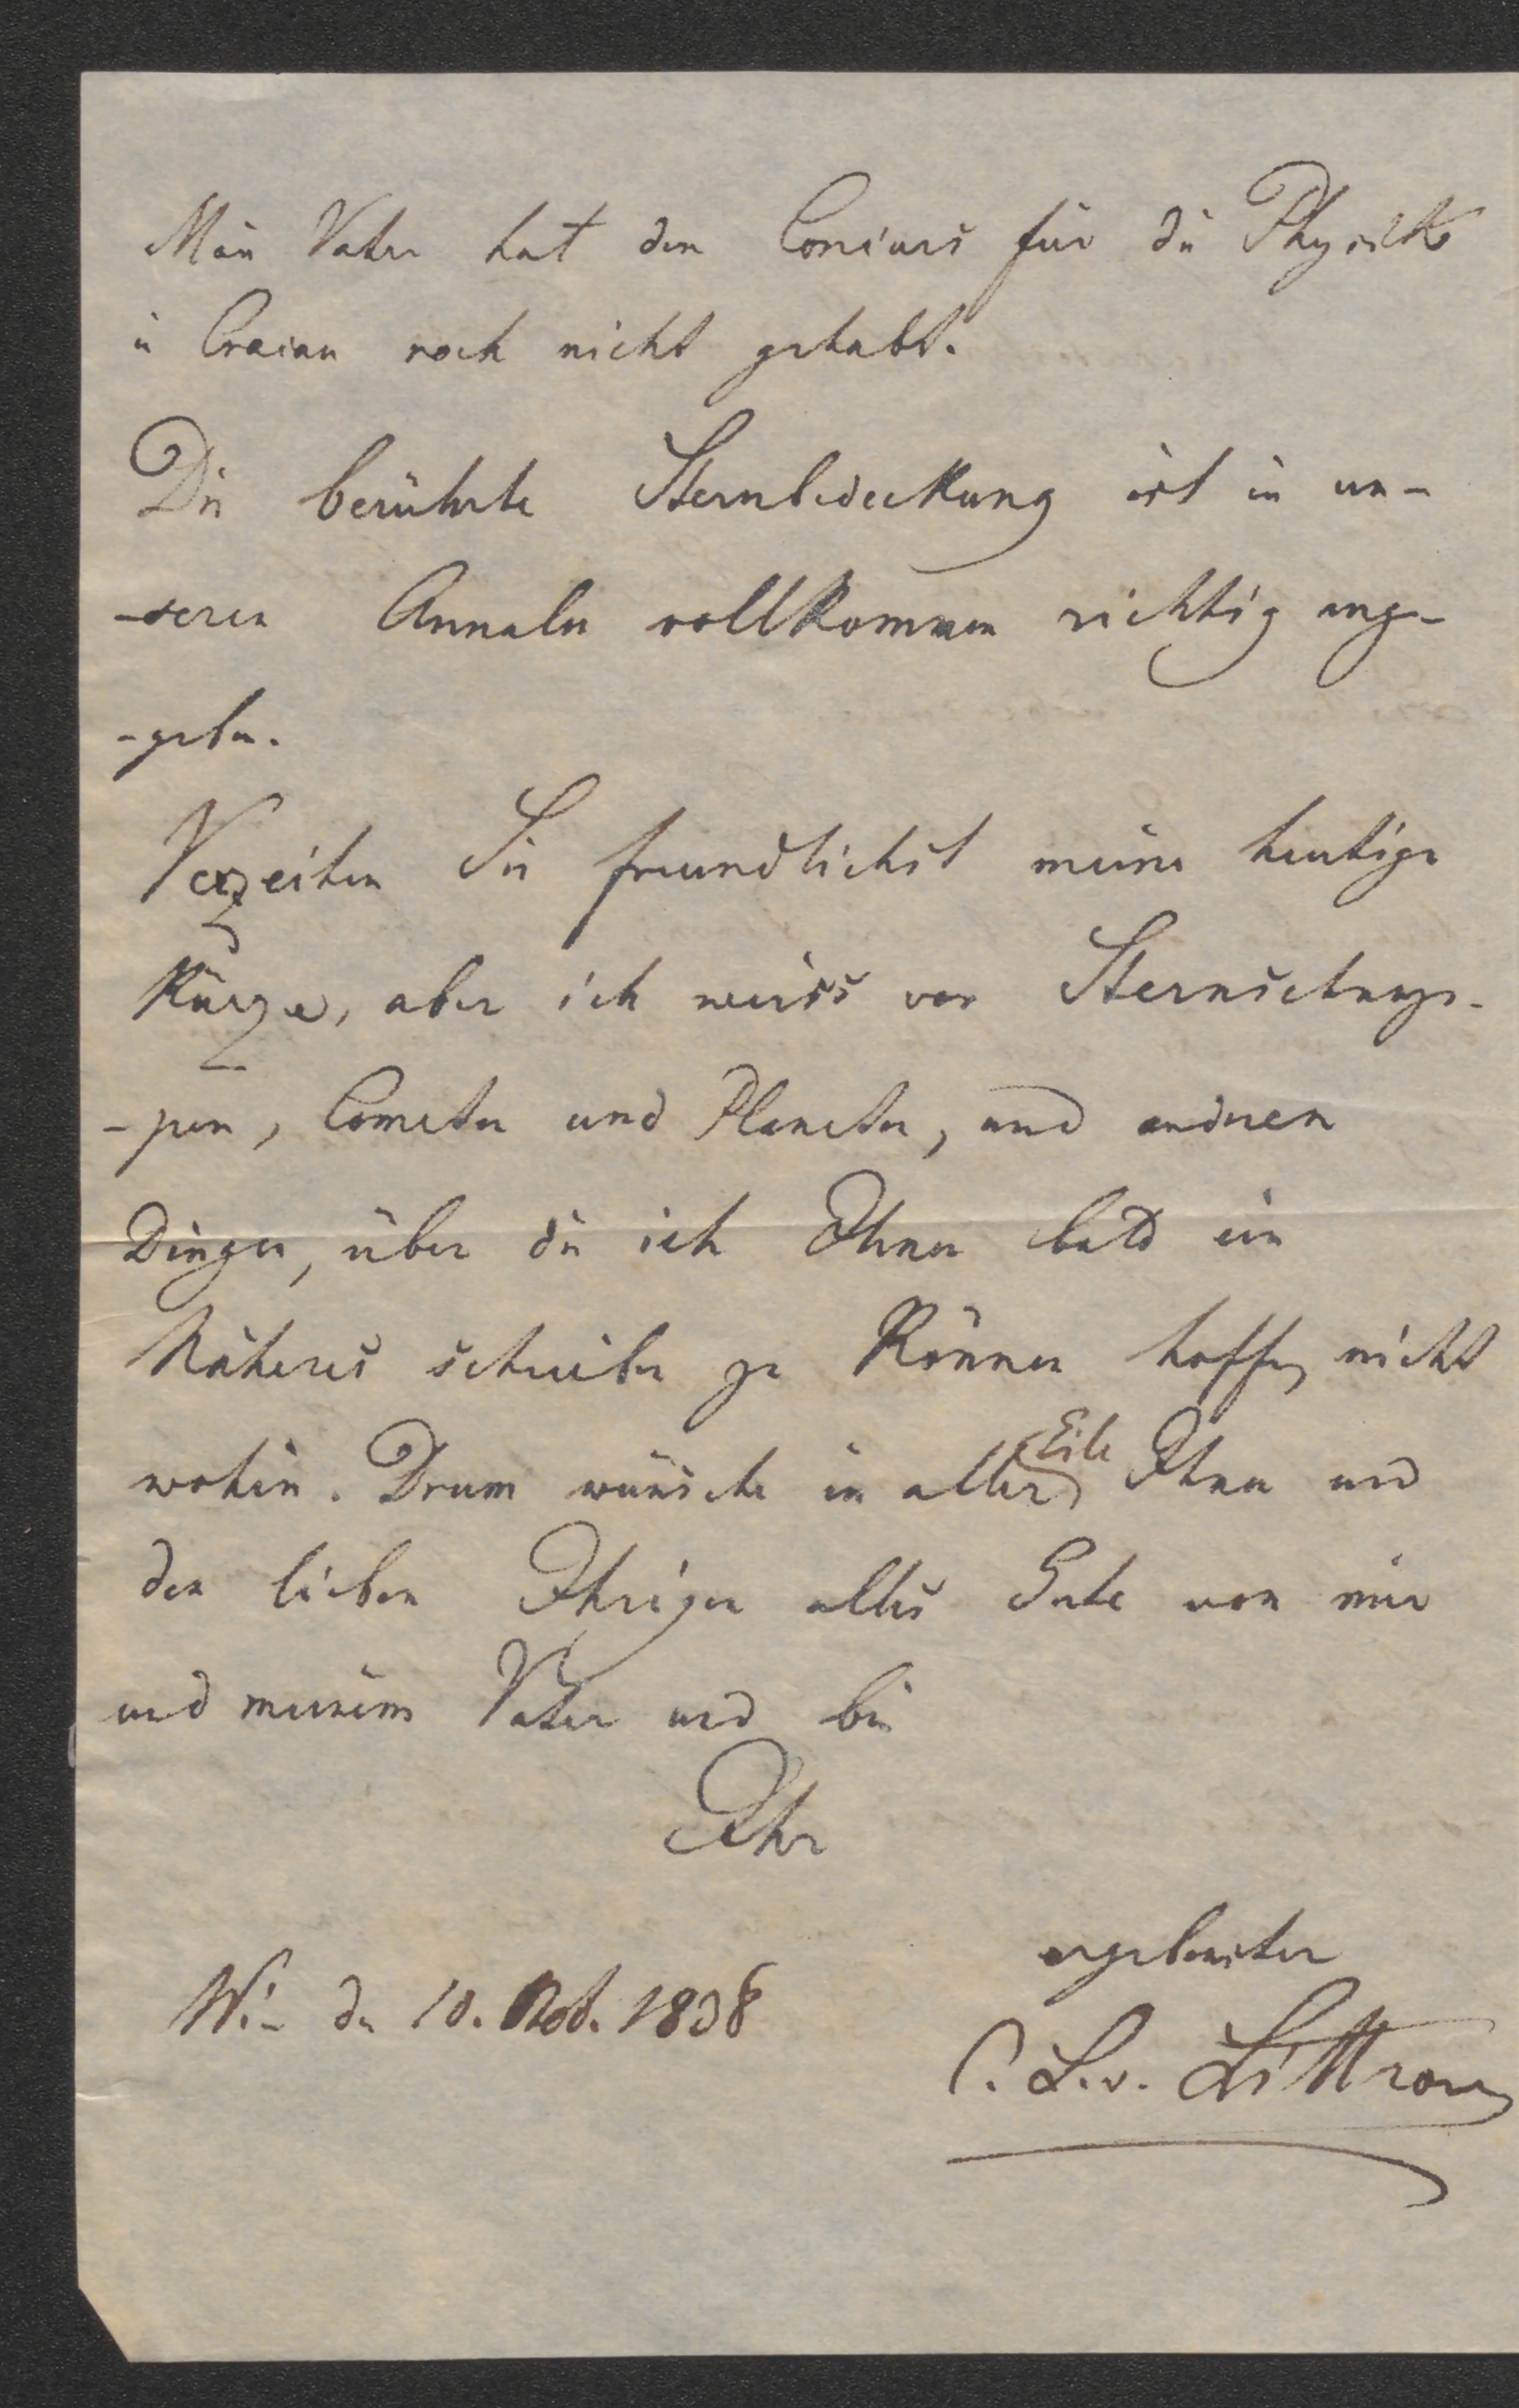 Mein Vater hat den Concurs für die Physik
in Cracau noch nicht gehabt.
Die berührte Sternbedeckung ist in un-
-seren Annalen vollkommen richtig ange-
-geben.
Verzeihen Sie freundlichst meine heutige
Kürze, aber ich weiss vor Sternschnup-
-pen, Cometen und Planeten, und anderen
Dingen, über die ich Ihnen bald ein
Näheres schreiben zu können hoffe, nicht
wohin. Drum wünsche in aller Eile Ihnen und
den lieben Ihrigen alles Gute von mir
und meinem Vater und bin
Ihr
ergebenster
Wien den 10. 1838
C. L. v. Littrow